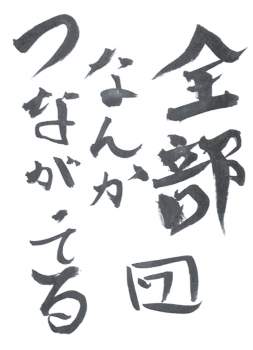 全部
なんか
つながってる